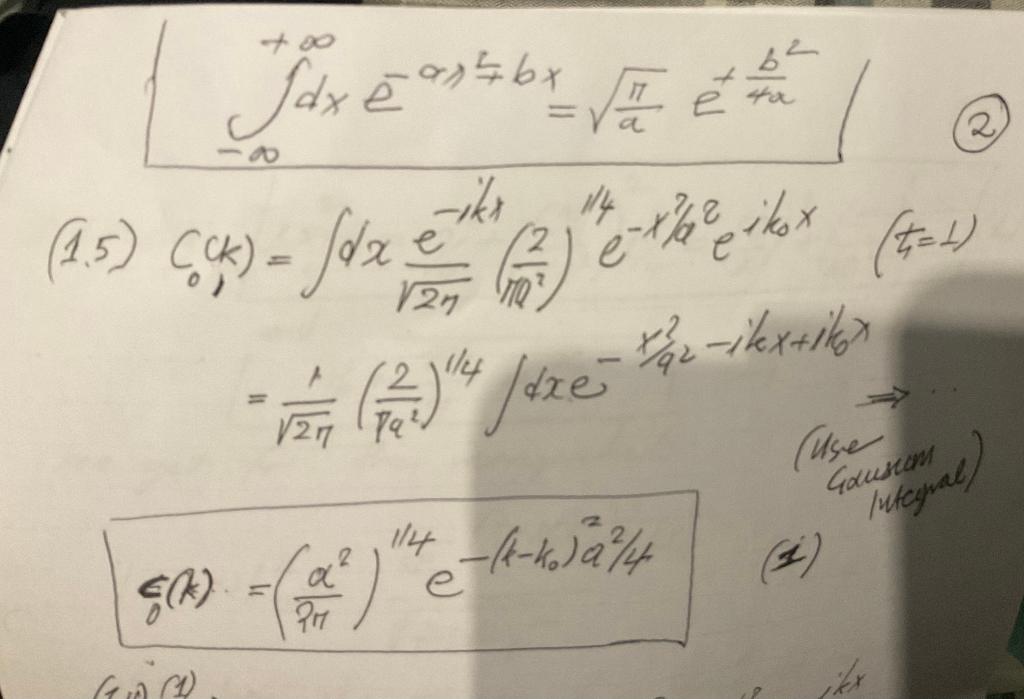 ∫_{-∞}^{+∞} dx e^{-ax² ∓ bx} = √(π/a) e^{+b²/4a}
②
(1.5) C₀(k) = ∫dx e^{-ikx}/√2π (2/πa²)^{1/4} e^{-x²/a²} e^{ik₀x} (ħ=1)
= 1/√2π (2/πa²)^{1/4} ∫dx e^{-x²/a² -ikx+ik₀x} ⇒ ...
(Use Gaussian Integral)
C₀(k) = (a²/2π)^{1/4} e^{-(k-k₀)²a²/4} (1)